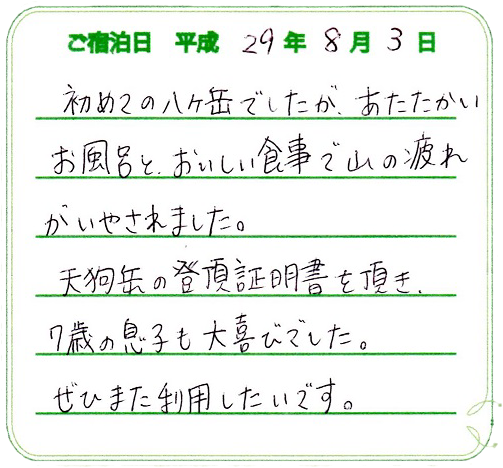 ご宿泊日 平成 29年 8月 3日
初めての八ヶ岳でしたが、あたたかい
お風呂と、おいしい食事で山の疲れ
がいやされました。
天狗岳の登頂証明書を頂き、
7歳の息子も大喜びでした。
ぜひまた利用したいです。